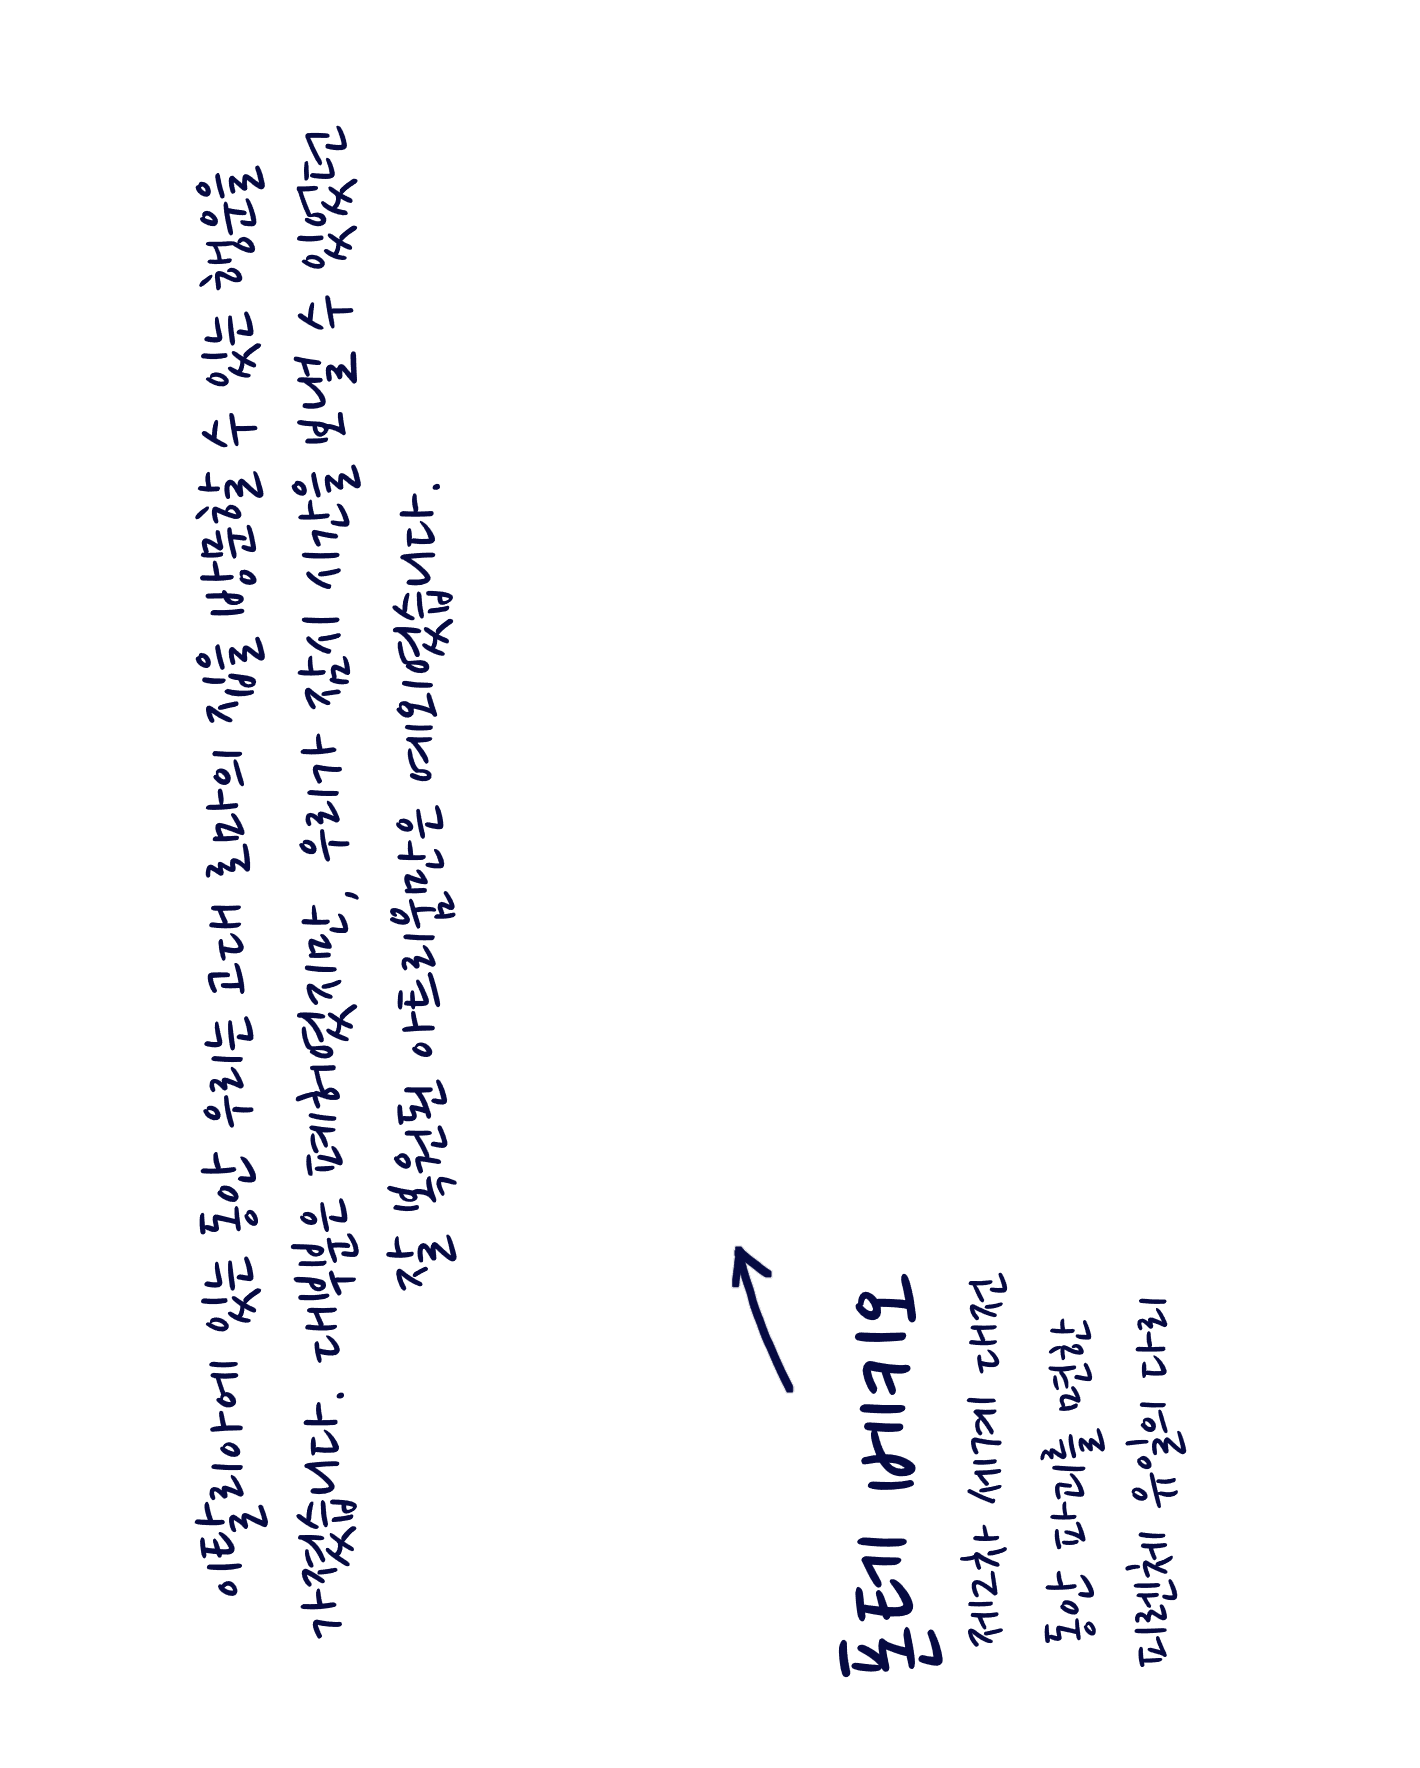 이탈리아에 있는 동안 우리는 고대 로마의 집을 방문할 수 있는 행운을
가졌습니다. 대부분은 폐허였지만, 우리가 잠시 시간을 보낼 수 있었던 곳
잘 복원된 아트리움만은 예외였습니다.
폰테 베키오
제2차 세계 대전
동안 파괴를 면한
피렌체 유일의 다리